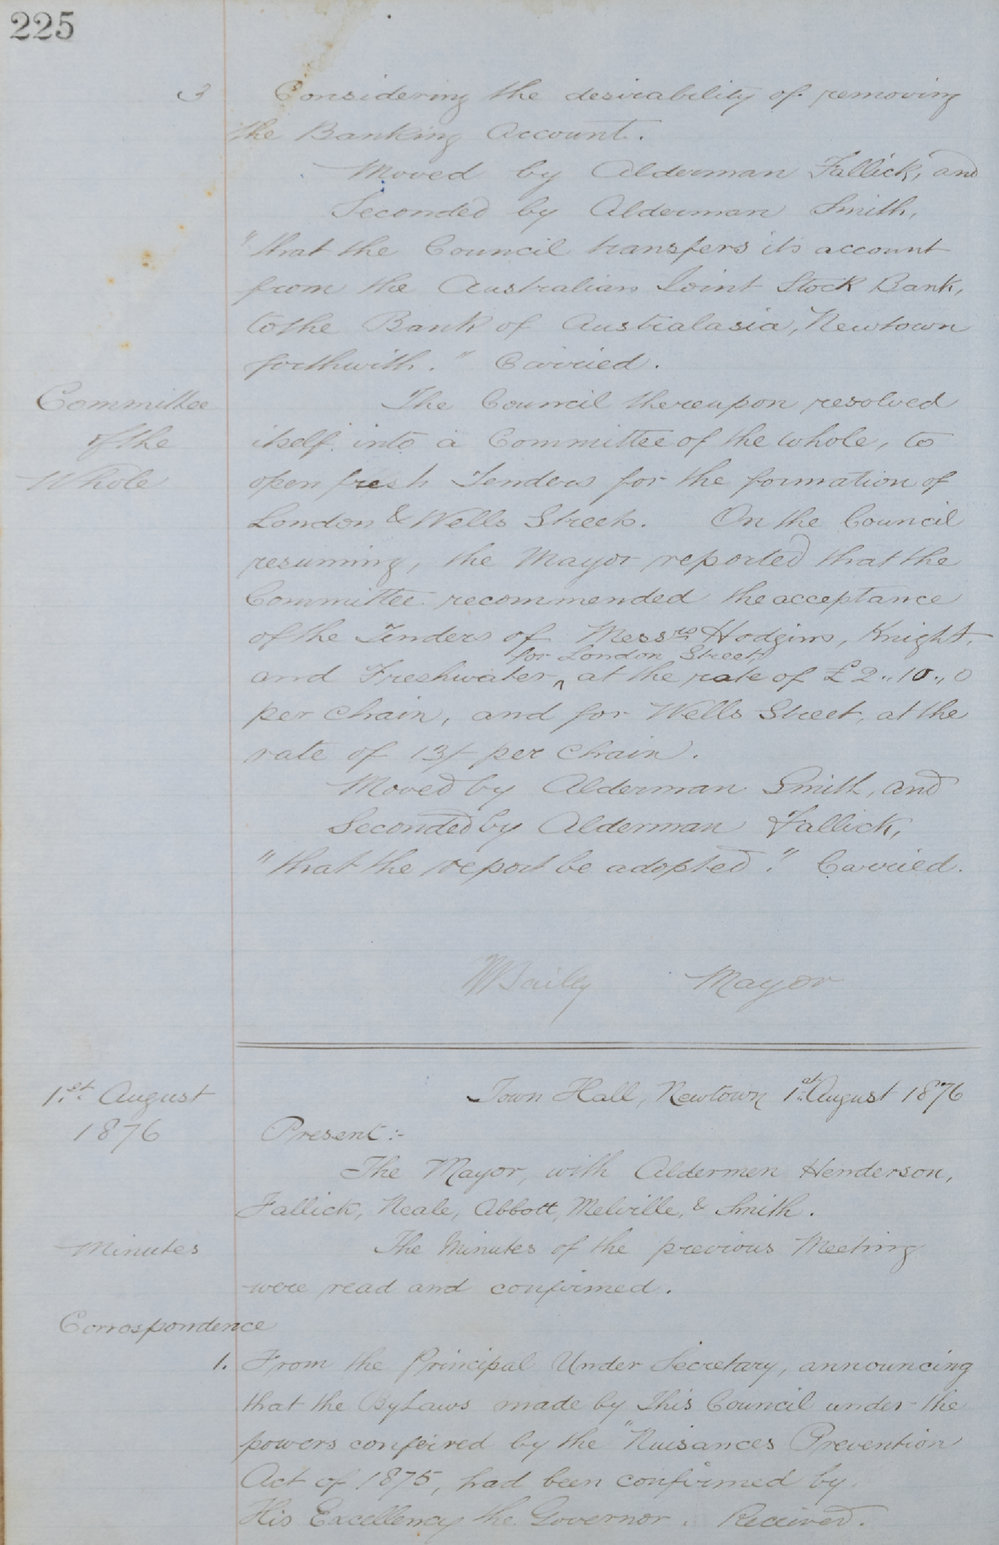 225
3 Considering the desirability of removing
the Banking Account.
Moved by Alderman Fallick, and
Seconded by Alderman Smith,
"that the Council transfers its account
from the Australian Joint Stock Bank,
to the Bank of Australasia, Newtown
forthwith." Carried.
Committee
of the
Whole
The Council thereupon resolved
itself into a Committee of the whole, to
open fresh Tenders for the formation of
London & Wells Streets. On the Council
resuming, the Mayor reported that the
Committee recommended the acceptance
of the Tenders of Messrs Hodgins, Knight
for London Street,
and Freshwater, at the rate of £2.,10.,0
per chain, and for Wells Street, at the
rate of 13/- per Chain.
Moved by Alderman Smith, and
Seconded by Alderman Fallick,
"that the report be adopted." Carried.
W Bailey Mayor
1.st August
1876
Town Hall, Newtown 1st August 1876
Present:-
The Mayor, with Aldermen Henderson,
Fallick, Neale, Abbott, Melville, & Smith.
Minutes
The Minutes of the previous Meeting
were read and confirmed.
Correspondence
1. From the Principal Under Secretary, announcing
that the By Laws made by This Council under the
powers conferred by the "Nuisances Prevention
Act of 1875, had been confirmed by
His Excellency the Governor. Received.